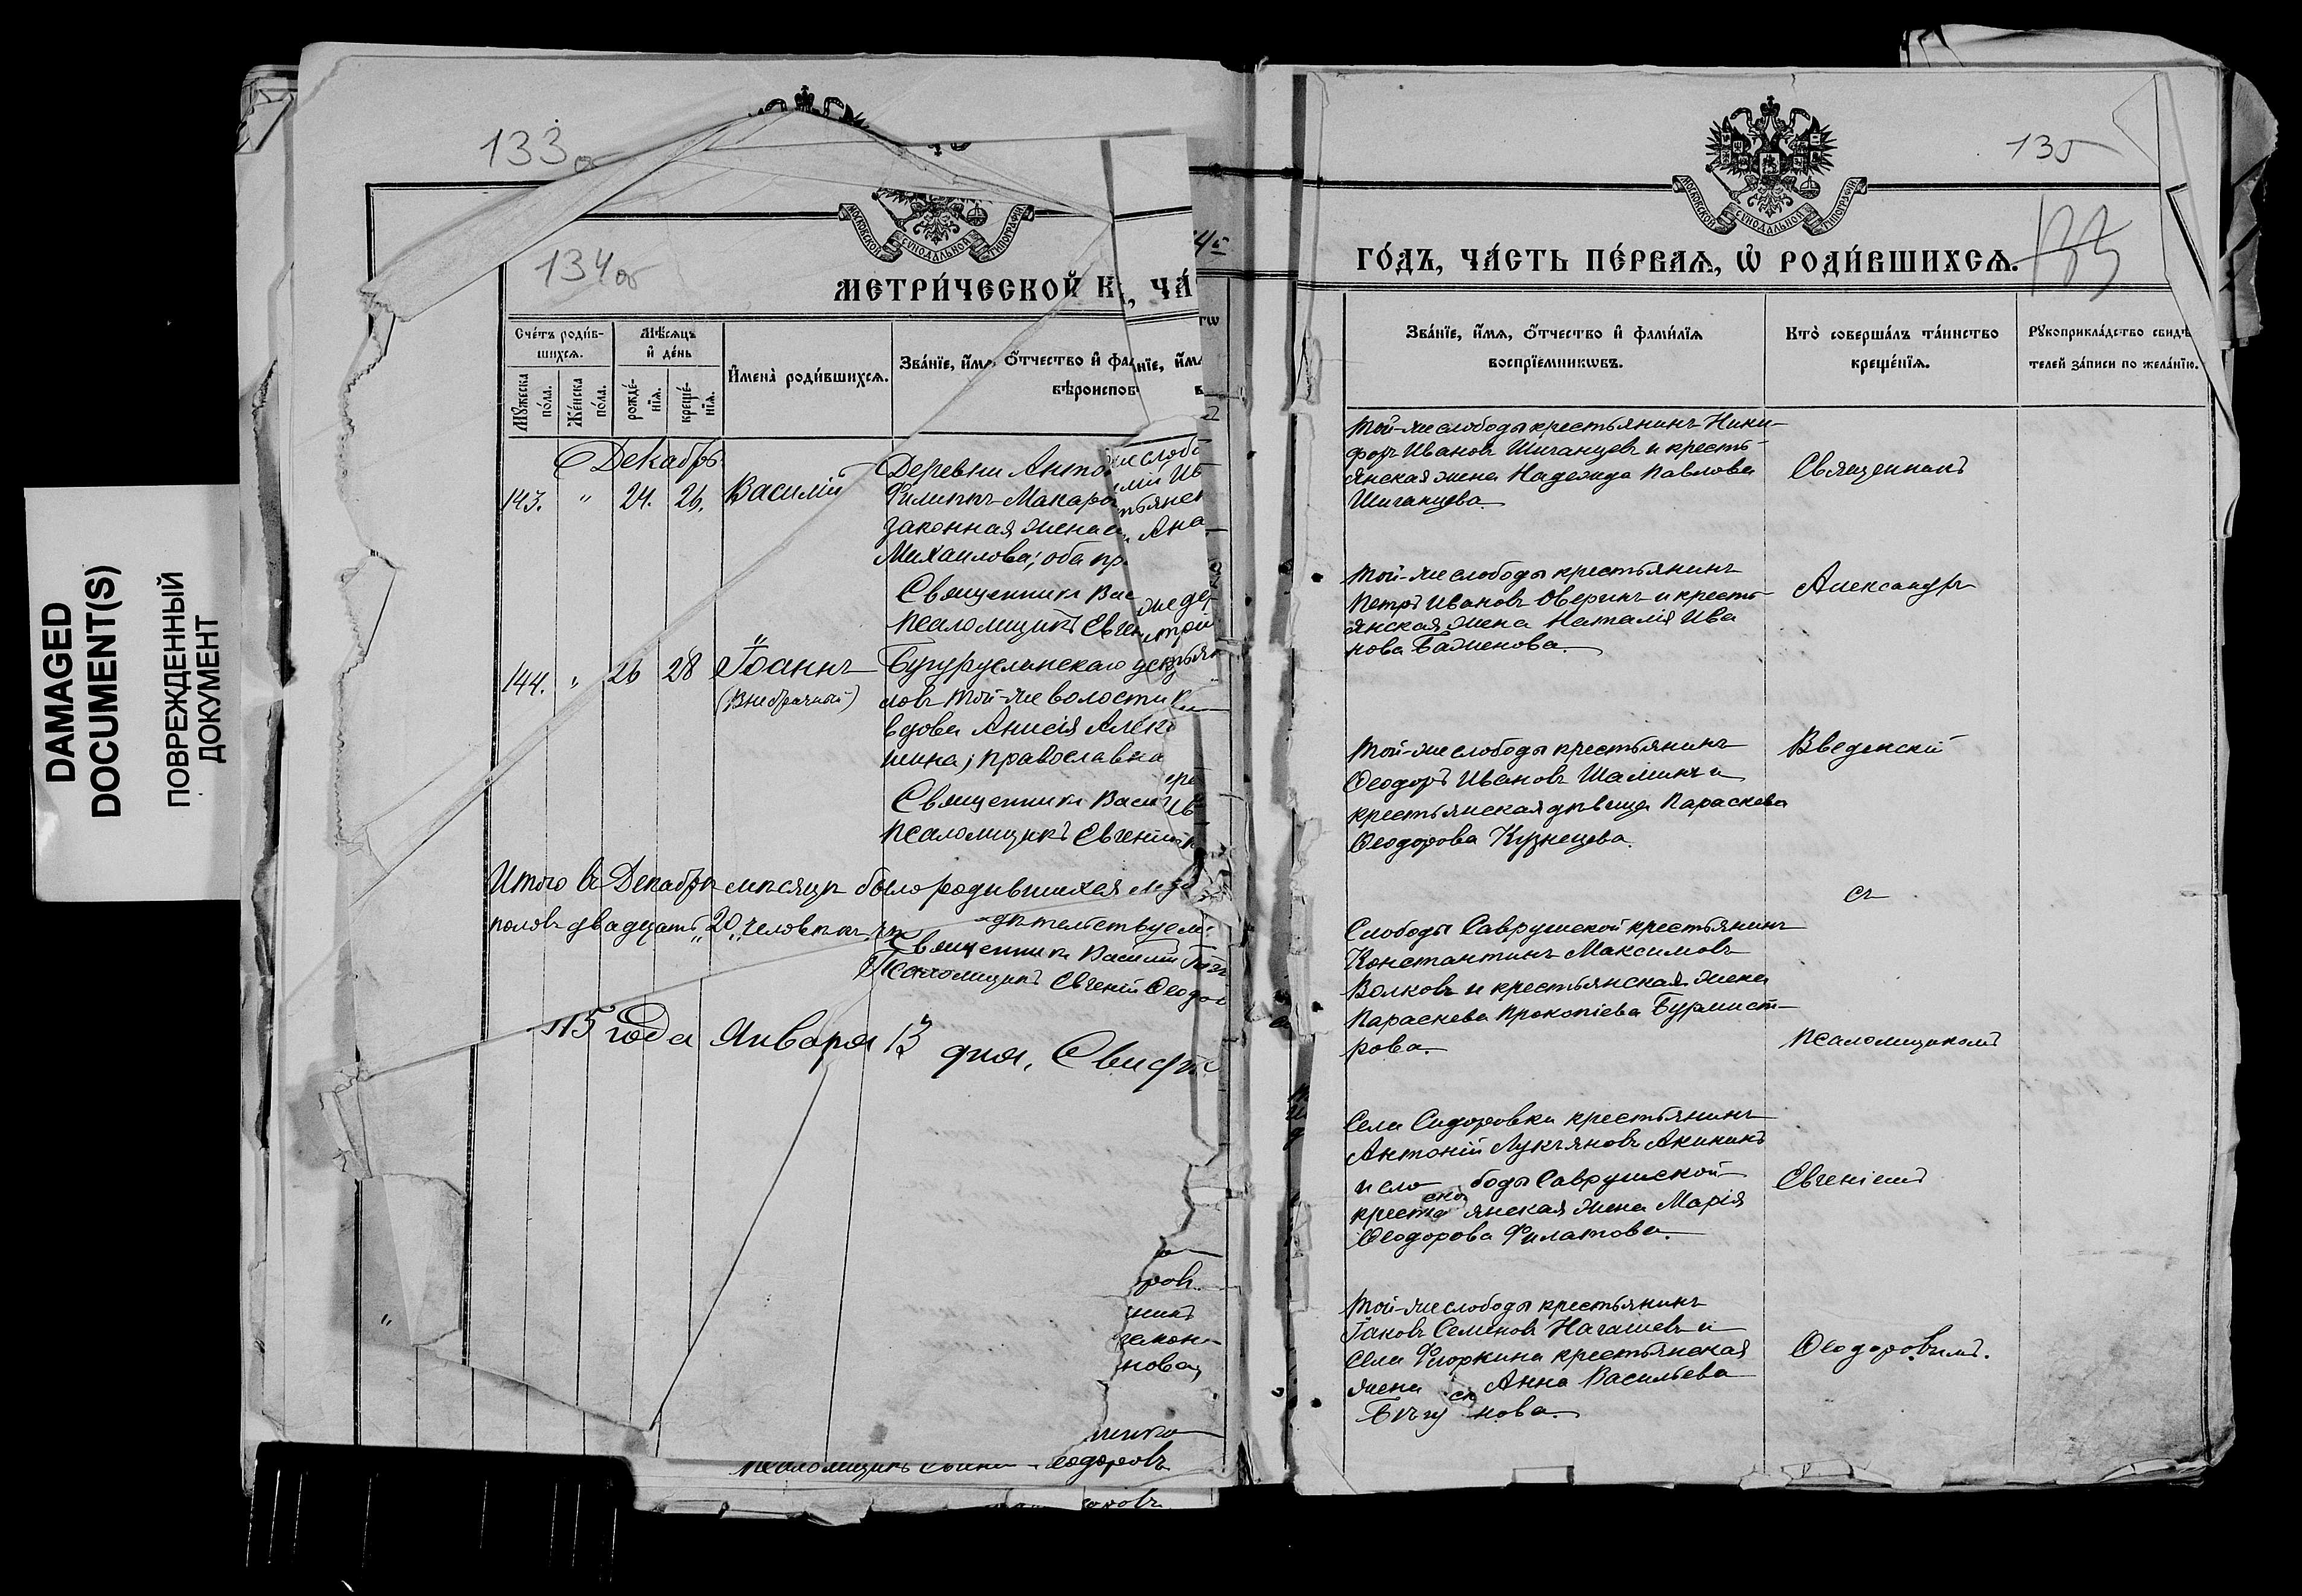 DAMAGED
DOCUMENT(S)
ПОВРЕЖДЕННЫЙ
ДОКУМЕНТ
133
134об
МОСКОВСКОЙ СѴНОДАЛЬНОЙ ТИПОГРАФІИ
МЕТРИ́ЧЕСКОЙ К
, ЧА́
Сче́тъ роди́в-
шихсѧ.
Мѣ́сѧцъ
и҆ де́нь
Мꙋ́жеска
по́ла.
Же́нска
по́ла.
рожде́-
нїѧ.
креще́-
нїѧ.
И҆мена̀ роди́вшихсѧ.
Зва́нїе, и҆́мѧ, ѻ҆́тчество и҆ фа
вѣроиспов
Декабрь
143. " 24. 26. Василій
Деревни Анто
Филиппъ Макаро
законная жена е
Михаилова; оба пр.
Священникъ Вас
Псаломщикъ Евген
144. " 26 28 Іоаннъ
(Внебрачный)
Бугурусланскаго уез
той-же волости
вдова Анисія Алек
шина; православна
Священникъ Васи
Псаломщикъ Евгеній
Итого въ Декабрѣ мѣсяцѣ было родившихся
половъ двадцать „20„ человѣкъ
дѣтельствуем
Священникъ Василій
Псаломщикъ Евгеній Ѳеодо
15 года Января 13 дня. Свидѣ
ровъ
никъ
закон
нова,
Псаломщикъ
еодоровъ
135
МОСКОВСКОЙ СѴНОДАЛЬНОЙ ТИПОГРАФІИ
ГО́ДЪ, ЧА́СТЬ ПЕ́РВАѦ, Ѡ҆ РОДИ́ВШИХСѦ.
Зва́нїе, и҆́мѧ, ѻ҆́тчество и҆ фами́лїѧ
воспрїе́мникѡвъ.
Кто̀ соверша́лъ та́инство
креще́нїѧ.
Рꙋкоприкла́дство свидѣ́
телей за́писи по жела́нїю.
Той-же слободы крестьянинъ Ники-
форъ Ивановъ Шиганцевъ и кресть-
янская жена Надежда Павлова
Шиганцева.
Священникъ
Той-же слободы крестьянинъ
Петръ Ивановъ Оверинъ и кресть-
янская жена Наталія Ива
нова Баженова.
Александръ
Той-же слободы крестьянинъ
Ѳеодоръ Ивановъ Шаминъ и
крестьянская дѣвица Параскева
Ѳеодорова Кузнецова.
Введенскій
съ
Слободы Саврушской крестьянинъ
Константинъ Максимовъ
Волковъ и крестьянская жена
Параскева Прокопіева Бурмист-
рова.
псаломщикомъ
Села Сидоровки крестьянинъ
Антоній Лукъяновъ Акининъ
и сло боды Саврушской
кресть янская жена Марія
Ѳеодорова Филатова.
Евгеніемъ
Той-же слободы крестьянинъ
Іаковъ Семеновъ Нагашевъ и
села Фіоркина крестьянская
жена Анна Васильева
нова.
Ѳеодоровымъ.